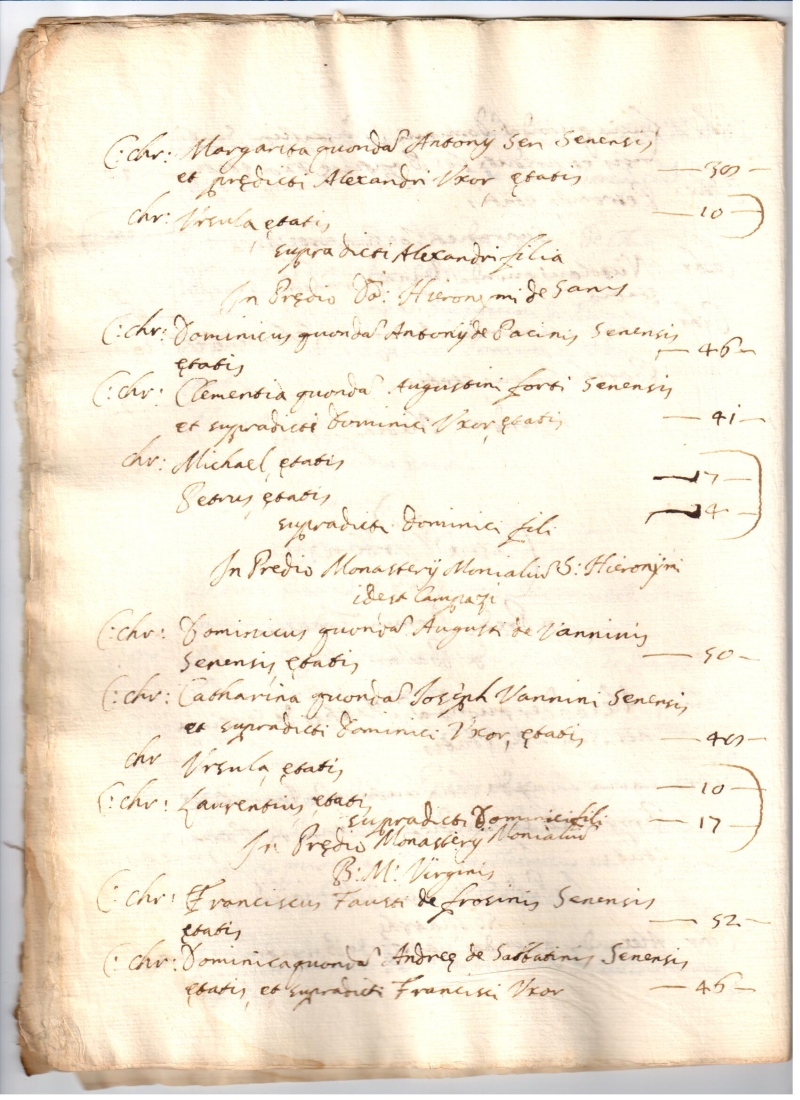 C: chr: Margarita quonda᷉ Antonij Sen Senensis
et prędicti Alexandri Vxor ętatis — 38 —
chr: Vrsula ętatis — 10 —
supradicti Alexandri filia
In Prędio D: Hieronymi de Sanis
C: chr: Dominicus quonda᷉ Antonij de Pacinis Senensis
ętatis — 46 —
C: chr: Clementia quonda᷉ Augustini forti Senensis
et supradicti Dominici Vxor ętatis — 41 —
chr: Michael ętatis — 17 —
Petrus ętatis — 4 —
supradicti Dominici fili
In Prędio Monasterij Monialiu᷉ S: Hieronymi
idest Campazi
C: chr: Dominicus quonda᷉ Augusti de Vanninis
Senensis ętatis — 50 —
C: chr: Catharina quonda᷉ Joseph Vannini Senensis
et supradicti Dominici Vxor, ętatis — 48 —
chr Vrsula ętatis — 10 —
C: chr: Laurentius ętatis — 17 —
supradicti Dominici fili
In Prędio Monasterij Monialiu᷉
B: M: Virginis
C: chr: Franciscus Fausti de frosinis Senensis
ętatis — 52 —
C: chr: Dominica quonda᷉ Andreę de Sabbatinis Senensis
ętatis et supradicti Francisci Vxor — 46 —